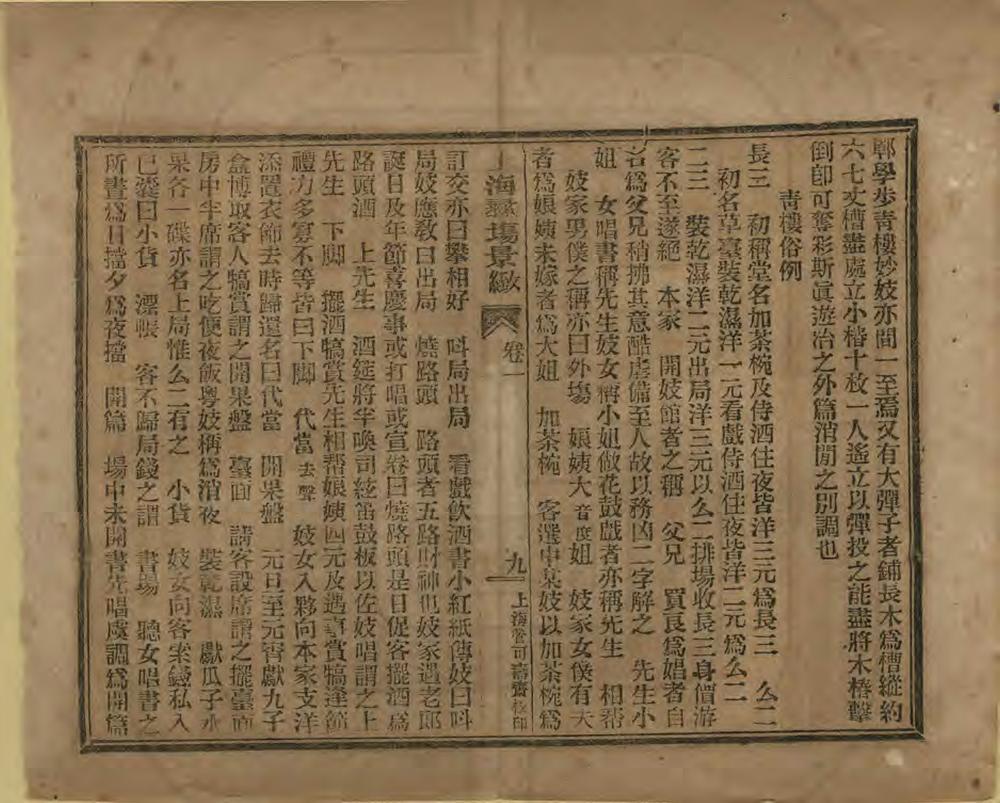 鄲學步青樓妙妓亦間一至焉又有大彈子者鋪長木爲槽縱約
六七丈槽盡處立小樁十枚一人遙立以彈投之能盡將木樁擊
倒卽可奪彩斯眞遊冶之外篇消閒之別調也
青樓俗例
長三 初稱堂名加茶椀及侍酒住夜皆洋三元爲長三 么二
初名草臺裝乾濕洋一元看戲侍酒住夜皆洋二元爲么二
二三 裝乾濕洋二元出局洋三元以么二排場收長三身價游
客不至遂絕 本家 開妓館者之稱 父兄 買良爲娼者自
名爲父兄稍拂其意酷虐備至人故以務凶二字解之 先生小
姐 女唱書稱先生妓女稱小姐做花鼓戲者亦稱先生 相幫
妓家男僕之稱亦曰外塲 娘姨大音度姐 妓家女僕有夫
者爲娘姨未嫁者爲大姐 加茶椀 客選中某妓以加茶椀爲
海塲景緻 卷二 九 上海管可壽齋
訂交亦曰攀相好 呌局出局 看戲飲酒書小紅紙傳妓曰呌
局妓應敎曰出局 燒路頭 路頭者五路財神也妓家遇老郎
誕日及年節喜慶事或打唱或宣卷曰燒路頭是日促客擺酒爲
路頭酒 上先生 酒筵將半喚司絃笛鼓板以佐妓唱謂之上
先生 下脚 擺酒犒賞先生相幫娘姨四元及遇事賞犒逢節
禮力多寡不等皆曰下脚 代當去聲 妓女入夥向本家支洋
添置衣飾去時歸還名曰代當 開果盤 元旦至元宵獻九子
盒博取客人犒賞謂之開果盤 臺面 請客設席謂之擺臺面
房中半席謂之吃便夜飯粵妓稱爲消夜 裝乾濕 獻瓜子水
果各一碟亦名上局惟么二有之 小貨 妓女向客索錢私入
已囊曰小貨 漂帳 客不歸局錢之謂 書場 聽女唱書之
所晝爲日擋夕爲夜擋 開篇 場中未開書先唱虞調爲開篇